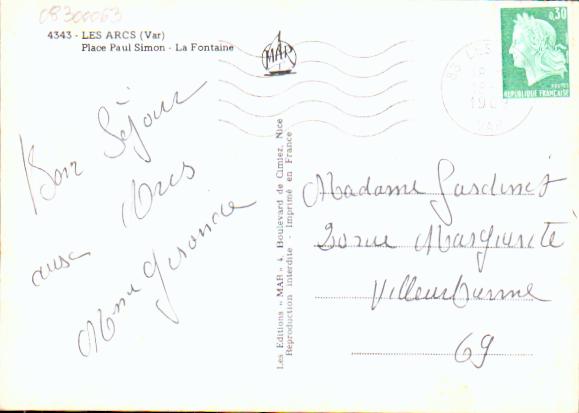 08300063
4343 - LES ARCS (Var)
Place Paul Simon - La Fontaine
MAR
0,30
REPUBLIQUE FRANÇAISE
VAR
Bon Séjour
aux Arcs
Mme
Les Editions "MAR" 4, Boulevard de Cimiez, Nice
Reproduction interdite - Imprimé en France
Madame
20 rue Marguerite
Villeurbanne
69